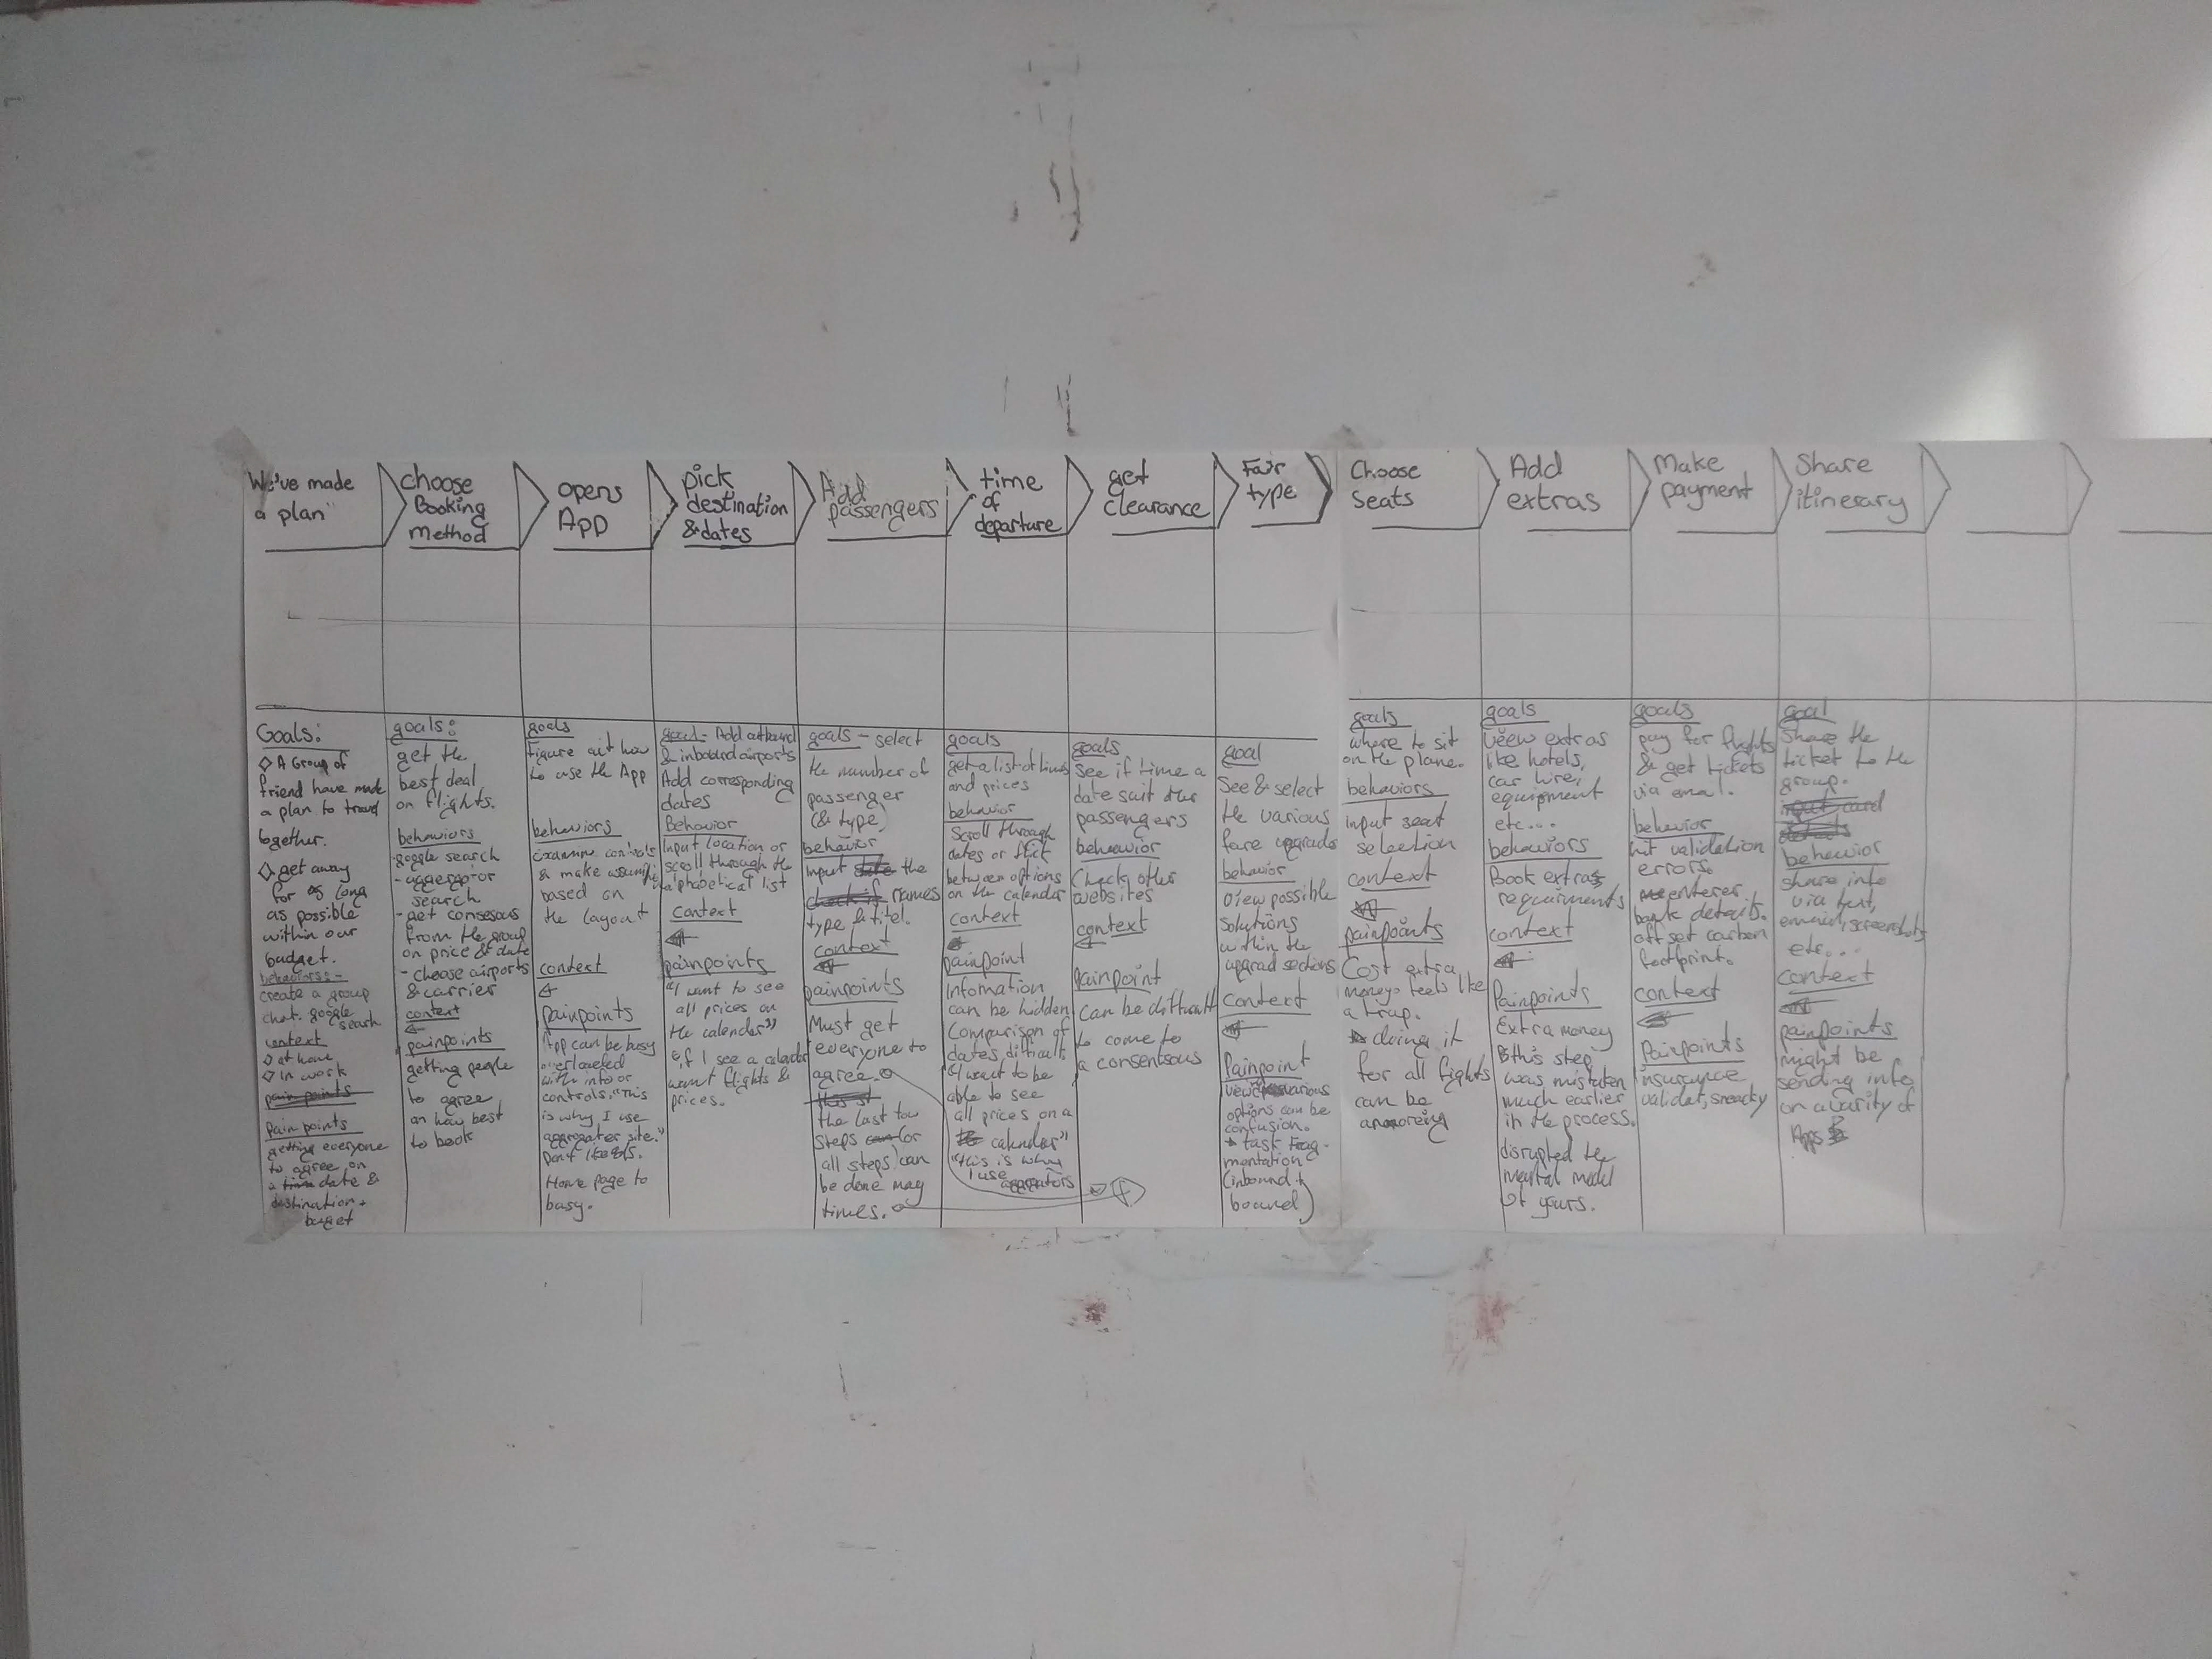 "We've made
a plan"
choose
Booking
Method
opens
App
pick
destination
& dates
Add
passengers
time
of
departure
get
clearance
Fair
type
Choose
Seats
Add
extras
Make
payment
Share
itinerary
Goals:
A Group of
friend have made
a plan to travel
together.
get away
for as long
as possible
within our
budget.
behaviorss -
create a group
chat. google
search
context
at home
in work
pain points
pain points
getting everyone
to agree on
a time date &
destination +
buget
goals:
get the
best deal
on flights.
behaviors
- google search
- aggerator
search
- get consesous
from the group
on price & date
- choose airports
& carrier
context
painpoints
getting people
to agree
on how best
to book
goals
Figure out how
to use the App
behaviors
Examine controls
& make
based on
the layout
context
painpoints
App can be busy
overloaded
with info or
controls. "This
is why I use
aggregater site."
Home page to
busy.
goal - Add outbound
& inboard airports
Add corresponding
dates
Behavior
input location or
scroll through the
alphabetical list
context
painpoints
"I want to see
all prices on
the calender"
if I see a calender
want flights &
prices.
goals - select
the number of
passenger
(& type)
behavior
input date the
check if names
type & titel.
context
painpoints
Must get
everyone to
agree.
this st
the last tow
steps can (or
all steps) can
be done may
times.
goals
get a list of times
and prices
behavior
Scroll through
dates or flick
between options
on the calender
context
painpoint
Infomation
can be hidden
Comparison of
dates, difficult
"I want to be
able to see
all prices on a
calender"
"this is why
I use aggrators
goals
See if time &
date suit other
passengers
behavior
Check other
websites
context
painpoint
can be difficult
to come to
a consentsous
goal
See & select
the various
fare upgrades
behavior
view possible
solutions
within the
upgrad sections
context
Painpoint
various
options can be
confusion.
task Frag-
mentation
(inbound +
bound)
goals
where to sit
on the plane.
behaviors
input seat
selection
context
painpoints
Cost extra
money. feels like
a trap.
doing it
for all fights
can be
annoying
goals
view extras
like hotels,
car hire,
equipment
etc...
behaviors
Book extras
requirments
context
Painpoints
Extra money
this step
was mistaken
much earlier
in the process.
disrupted the
mental model
of yours.
goals
pay for flights
& get tickets
via email.
behavior
hit validation
errors.
enterer
bank details.
off set carben
footprint.
context
Painpoints
insurance
validat, sneacky
goal
Share the
ticket to the
group.
input card
details
behavior
share info
via text,
email, screenshots
etc...
context
painpoints
might be
sending info
on a varity of
Apps